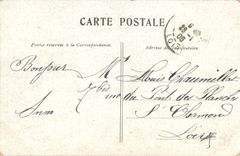 CARTE POSTALE
Partie réservée à la Correspondance.
Adresse du Destinataire
Bonjour
Mr Louis
7 bis rue du Pont des Planches
St Chamond
Loire